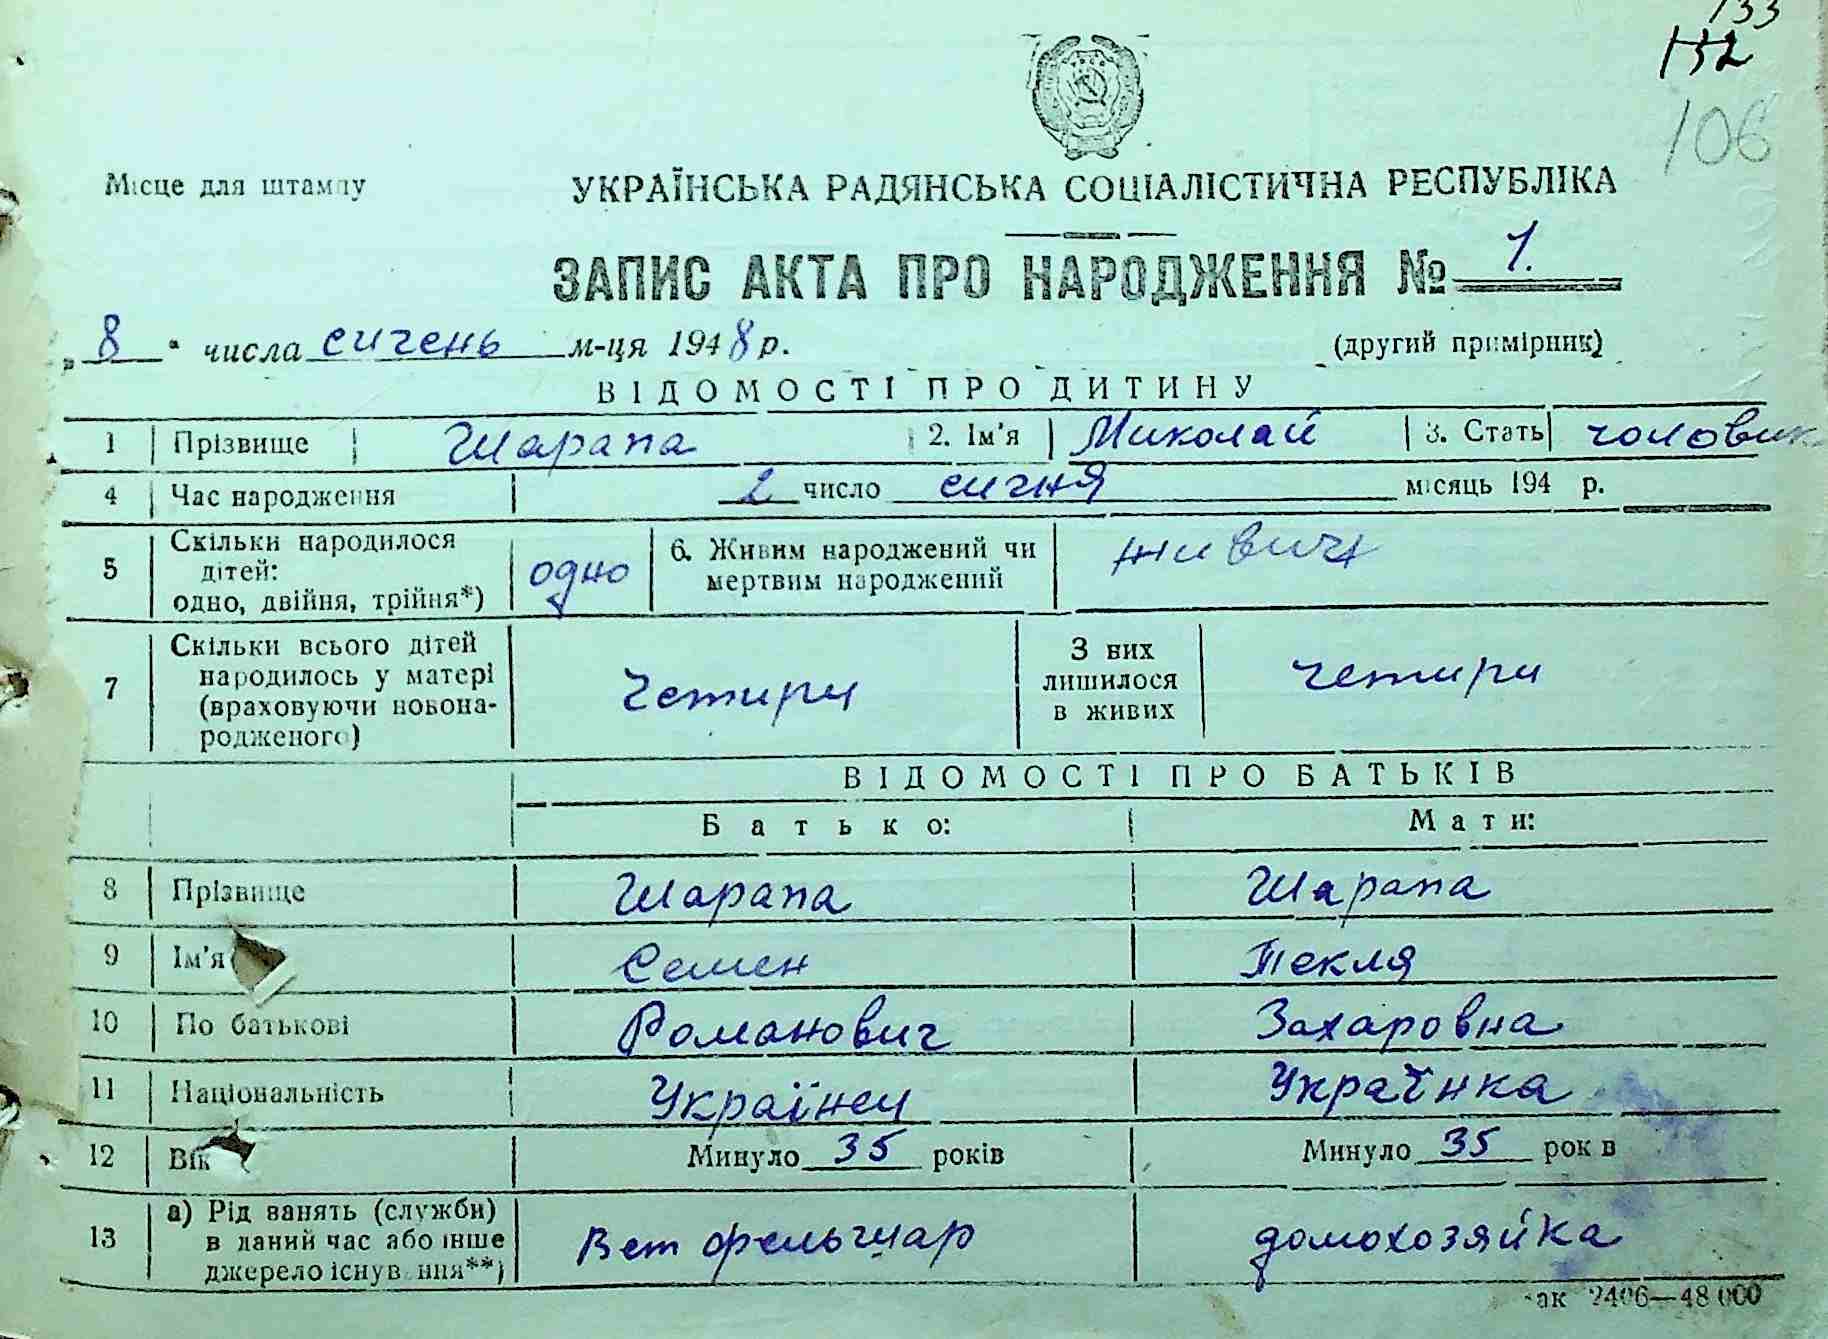 133
132
106
Місце для штампу
УКРАЇНСЬКА РАДЯНСЬКА СОЦІАЛІСТИЧНА РЕСПУБЛІКА
ЗАПИС АКТА ПРО НАРОДЖЕННЯ № 1.
„ 8 “ числа сичень м-ця 1948 р.
(другий примірник)
ВІДОМОСТІ ПРО ДИТИНУ
1 Прізвище Шарапа 2. Ім'я Миколай 3. Стать чоловик
4 Час народження 2 число сичня місяць 194 р.
5 Скільки народилося дітей: одно, двійня, трійня*) одно 6. Живим народжений чи мертвим народжений живич
7 Скільки всього дітей народилось у матері (враховуючи новона-родженого) четири З них лишилося в живих четири
ВІДОМОСТІ ПРО БАТЬКІВ
Батько: Мати:
8 Прізвище Шарапа Шарапа
9 Ім'я Семен Текля
10 По батькові Романович Захаровна
11 Національність Українец Українка
12 Вік Минуло 35 років Минуло 35 рок в
13 а) Рід занять (служби) в даний час або інше джерело існув ння**) Вет фельчшар домохозяйка
ак 2406—48 000